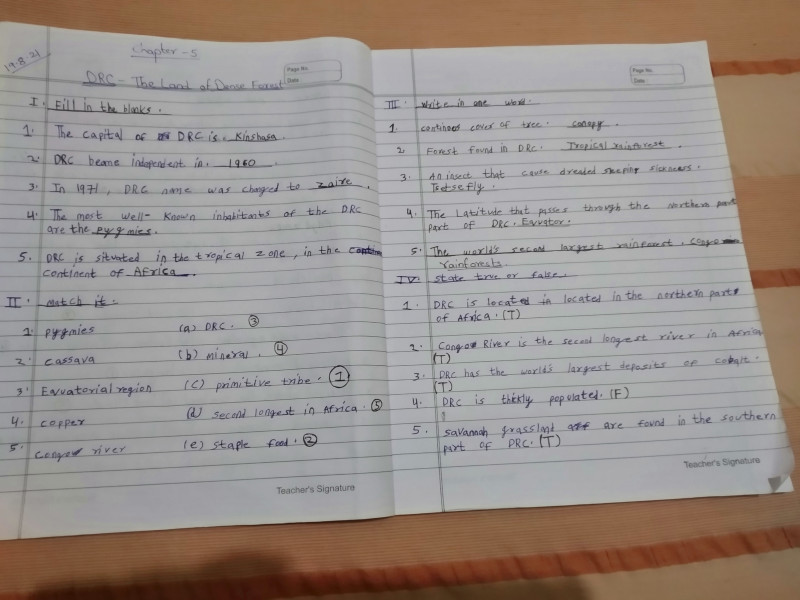 19.8.21
Chapter - 5
Page No.
Date
DRC - The Land of Dense Forest
I. Fill in the blanks.
1. The capital of DRC is. Kinshasa.
2. DRC beame independent in. 1960
3. In 1971, DRC name was changed to zaire.
4. The most well- known inhabitants of the DRC
are the pygmies.
5. DRC is situated in the tropical zone, in the
continent of Africa.
II. match it:
1. pygmies (a) DRC. ③
2. cassava (b) mineral. ④
3. Eavatorial region (c) primitive tribe. ①
4. copper (d) second longest in Africa. ⑤
5. congo river (e) staple food. ②
Teacher's Signature
Page No.
Date
III. Write in one word.
1. continoos cover of tree. canopy.
2. Forest found in DRC. Tropical rainforest.
3. An insect that cause dreaded sleeping sickness.
Tsetsefly.
4. The Latitude that passes through the northern part
part of DRC. Eavator.
5. The world's second largest rainforest. congo
rainforests.
IV. state true or false.
1. DRC is located in located in the northern part
of Africa. (T)
2. Congo River is the second longest river in Africa
(T)
3. DRC has the world's largest deposits of cobalt.
(T)
4. DRC is thickly populated. (F)
5. savannah grassland are found in the southern
part of DRC. (T)
Teacher's Signature